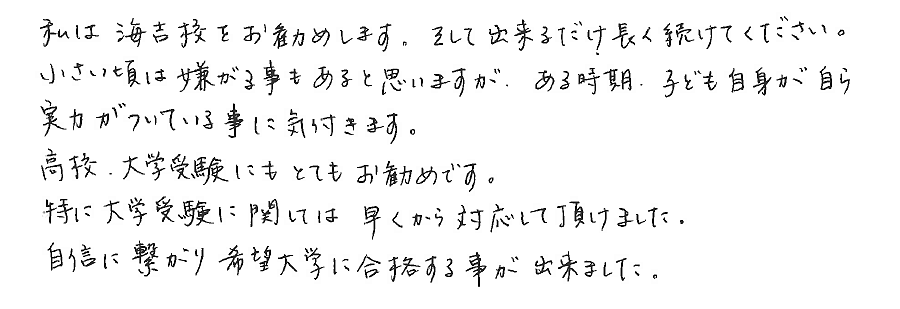 私は 海吉校をお勧めします。そして出来るだけ長く続けてください。
小さい頃は嫌がる事もあると思いますが、ある時期、子ども自身が自ら
実力がついている事に気付きます。
高校、大学受験にもとてもお勧めです。
特に大学受験に関しては 早くから対応して頂けました。
自信に繋がり希望大学に合格する事が出来ました。